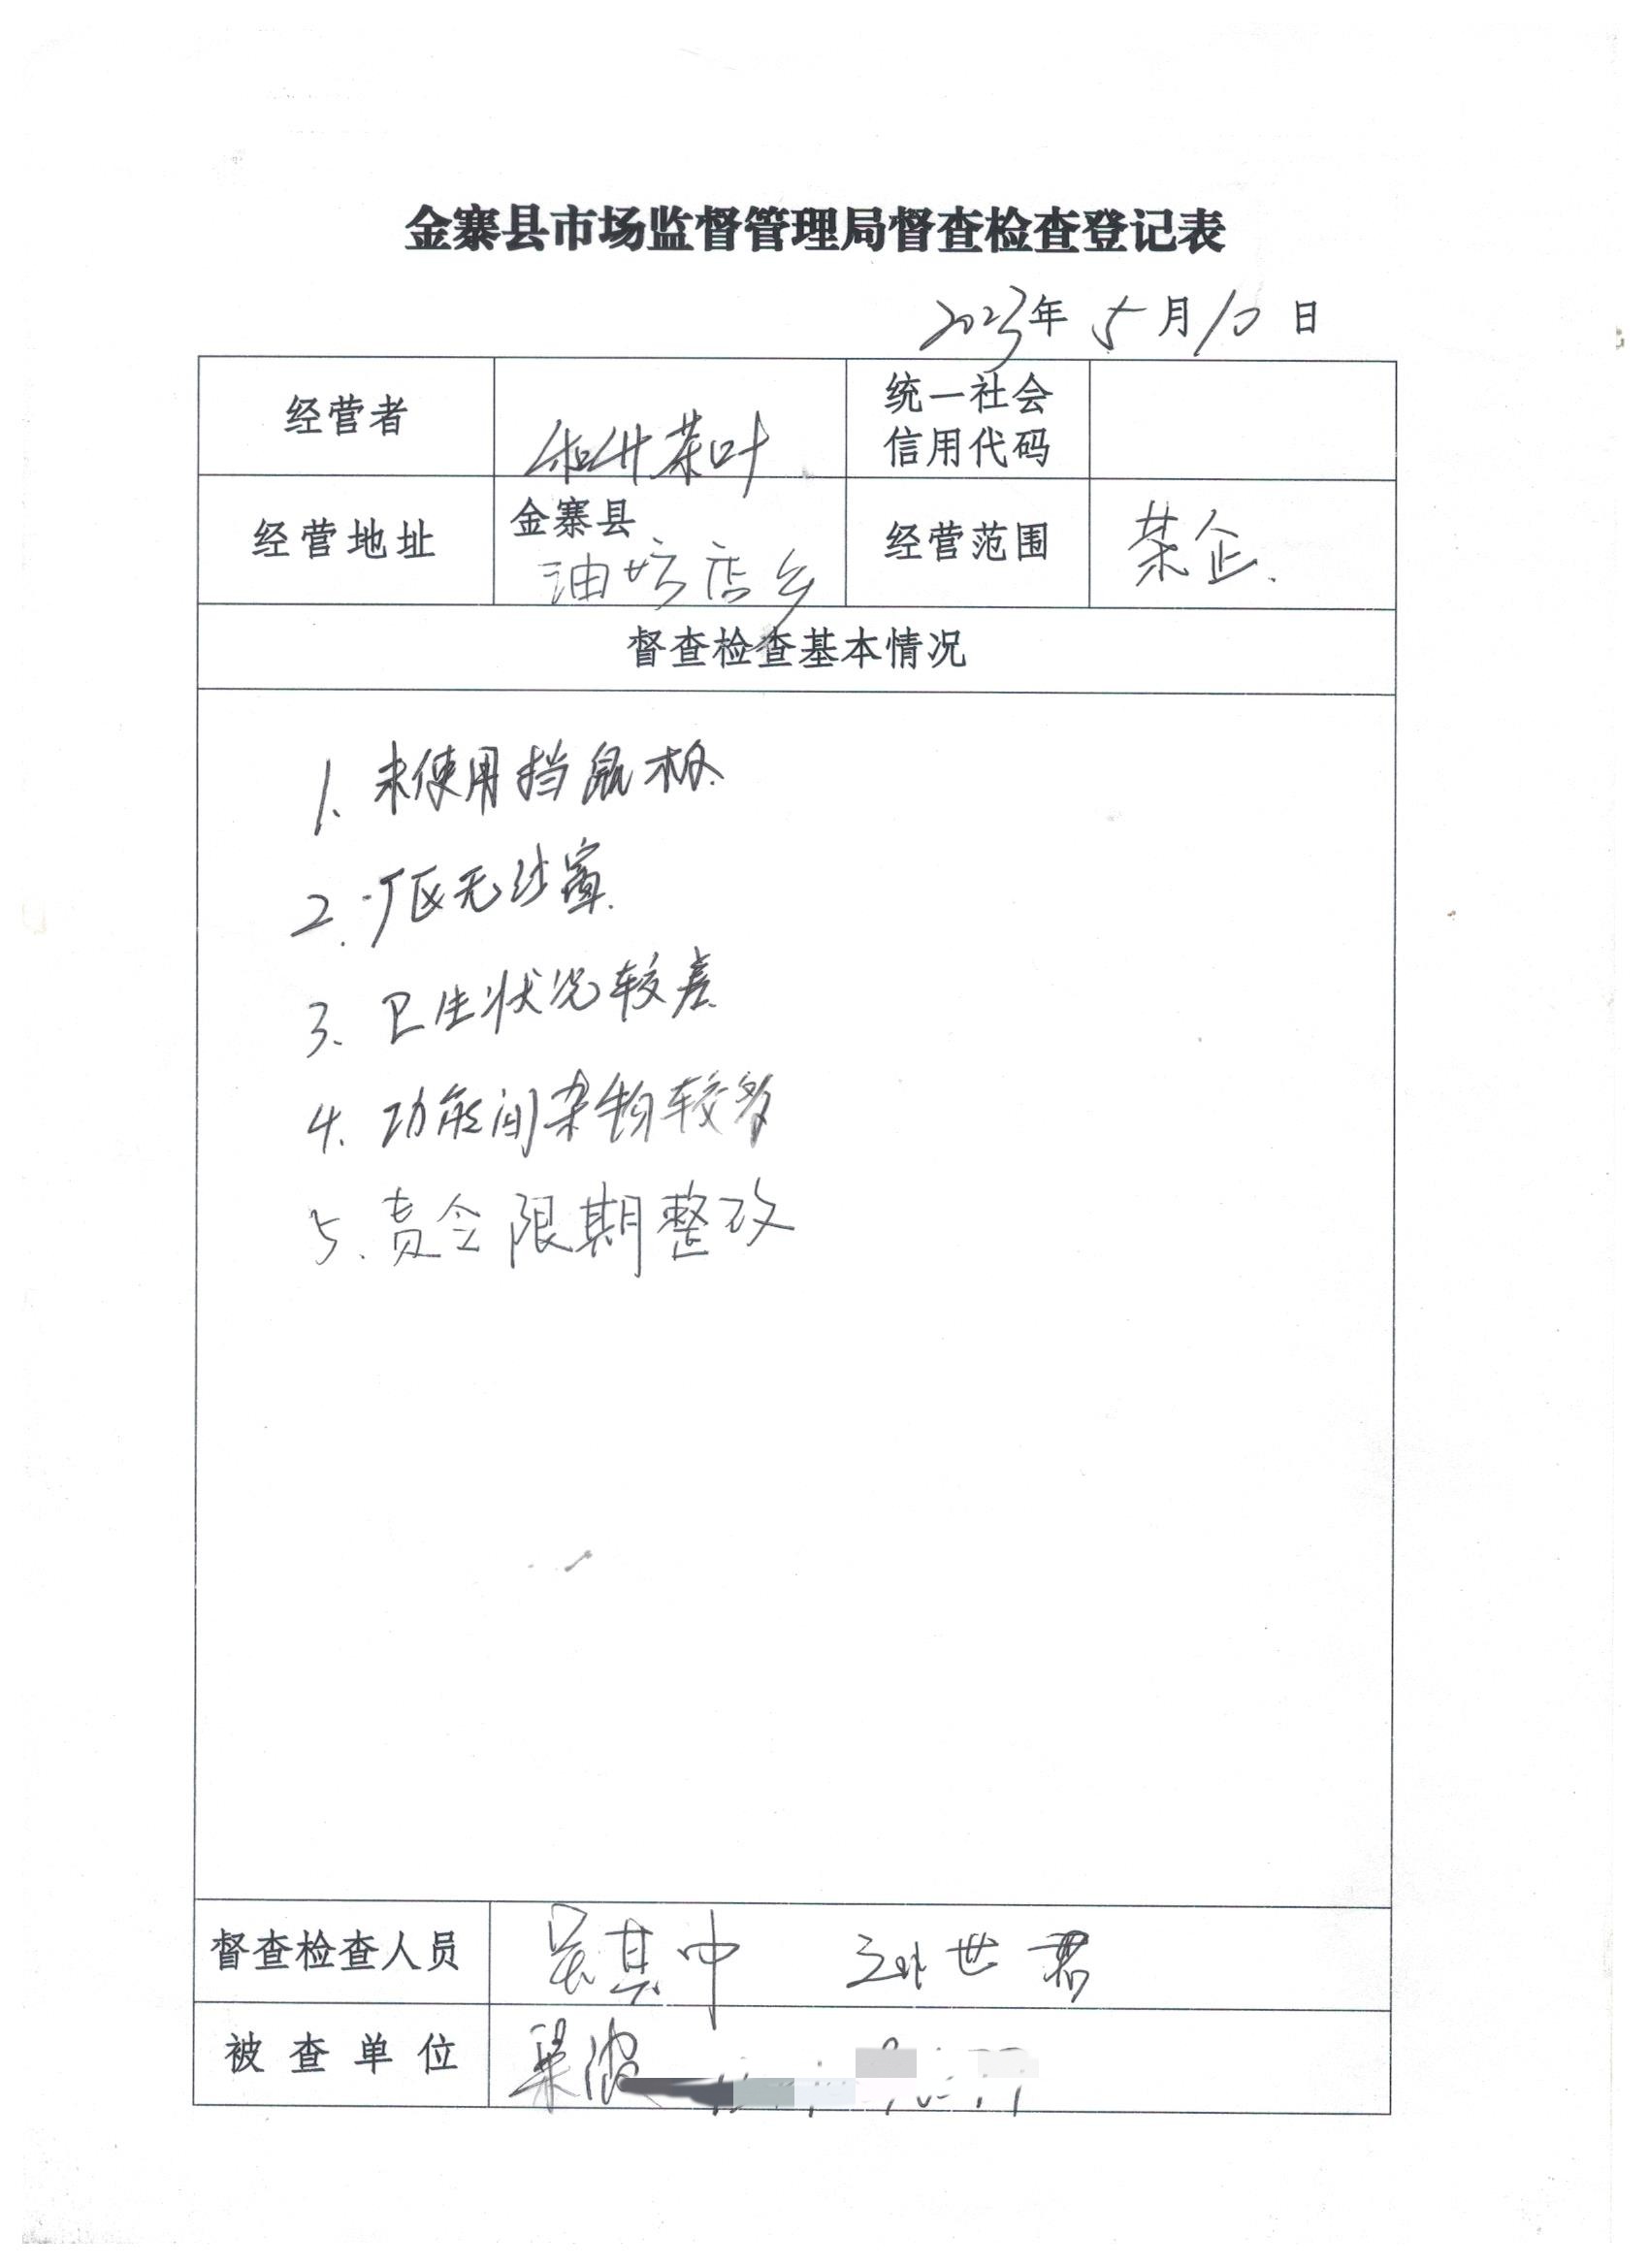 金寨县市场监督管理局督查检查登记表
2023年 5月10日
经营者 茶叶 统一社会信用代码
经营地址 金寨县油坊店乡 经营范围 茶企.
督查检查基本情况
1、未使用挡鼠板.
2、厂区无纱窗.
3、卫生状况较差
4、功能间杂物较多
5、责令限期整改
督查检查人员 吴其中 世君
被查单位